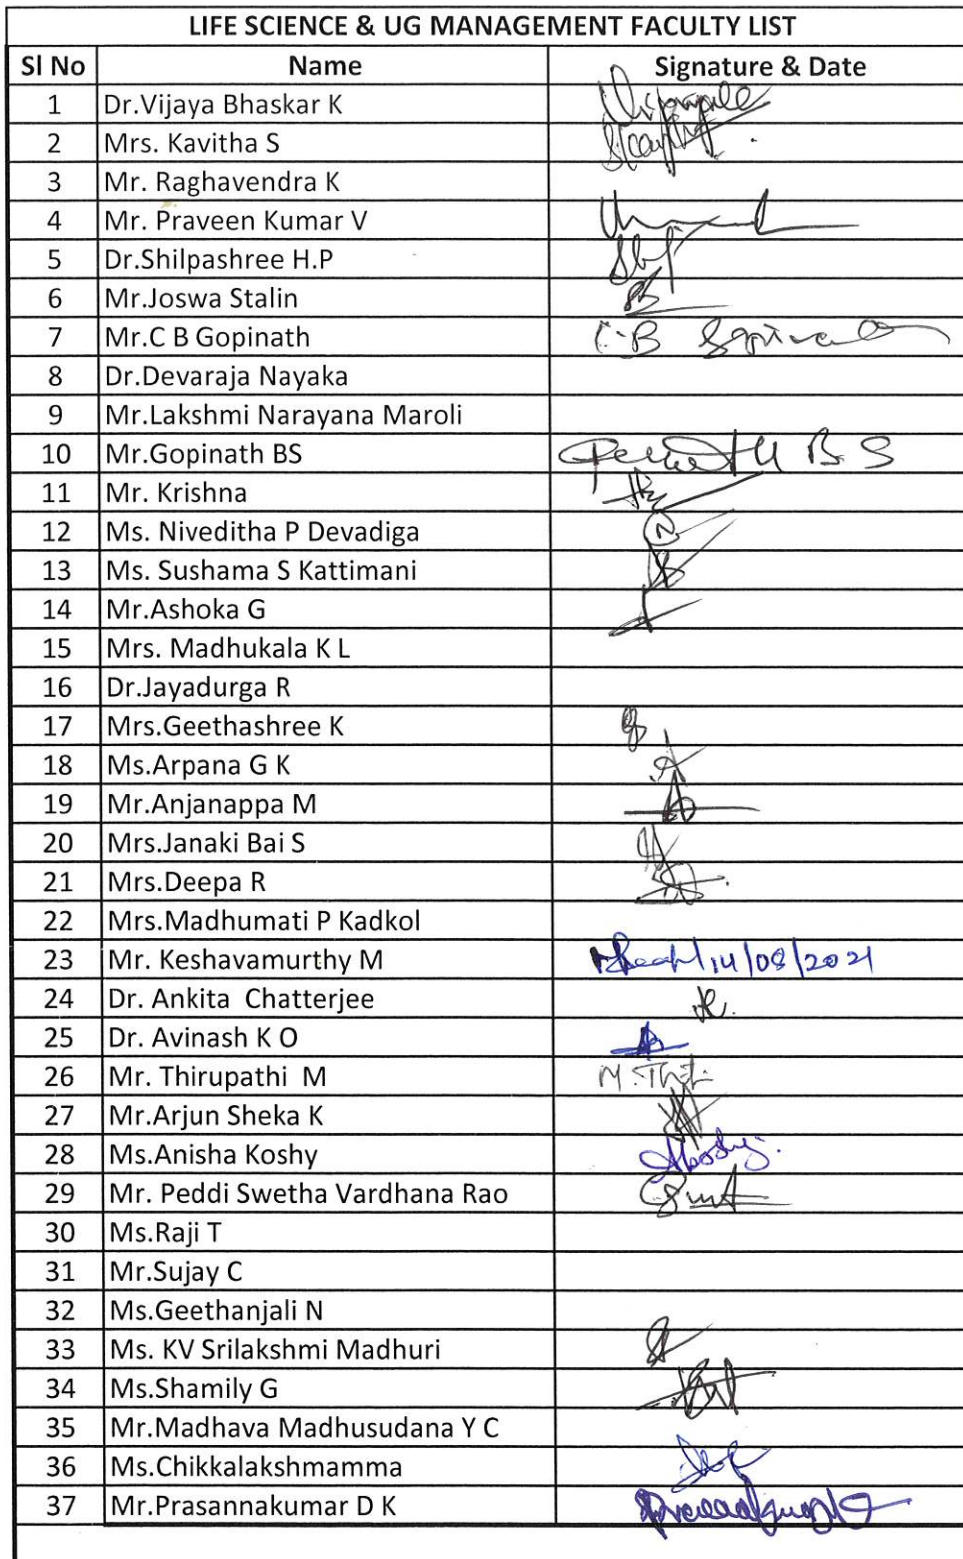 LIFE SCIENCE & UG MANAGEMENT FACULTY LIST
Sl No Name Signature & Date
1 Dr.Vijaya Bhaskar K
2 Mrs. Kavitha S
3 Mr. Raghavendra K
4 Mr. Praveen Kumar V
5 Dr.Shilpashree H.P
6 Mr.Joswa Stalin
7 Mr.C B Gopinath C-B Gopinath
8 Dr.Devaraja Nayaka
9 Mr.Lakshmi Narayana Maroli
10 Mr.Gopinath BS B S
11 Mr. Krishna
12 Ms. Niveditha P Devadiga
13 Ms. Sushama S Kattimani
14 Mr.Ashoka G
15 Mrs. Madhukala K L
16 Dr.Jayadurga R
17 Mrs.Geethashree K
18 Ms.Arpana G K
19 Mr.Anjanappa M
20 Mrs.Janaki Bai S
21 Mrs.Deepa R
22 Mrs.Madhumati P Kadkol
23 Mr. Keshavamurthy M 14/08/2021
24 Dr. Ankita Chatterjee
25 Dr. Avinash K O
26 Mr. Thirupathi M
27 Mr.Arjun Sheka K
28 Ms.Anisha Koshy
29 Mr. Peddi Swetha Vardhana Rao
30 Ms.Raji T
31 Mr.Sujay C
32 Ms.Geethanjali N
33 Ms. KV Srilakshmi Madhuri
34 Ms.Shamily G
35 Mr.Madhava Madhusudana Y C
36 Ms.Chikkalakshmamma
37 Mr.Prasannakumar D K